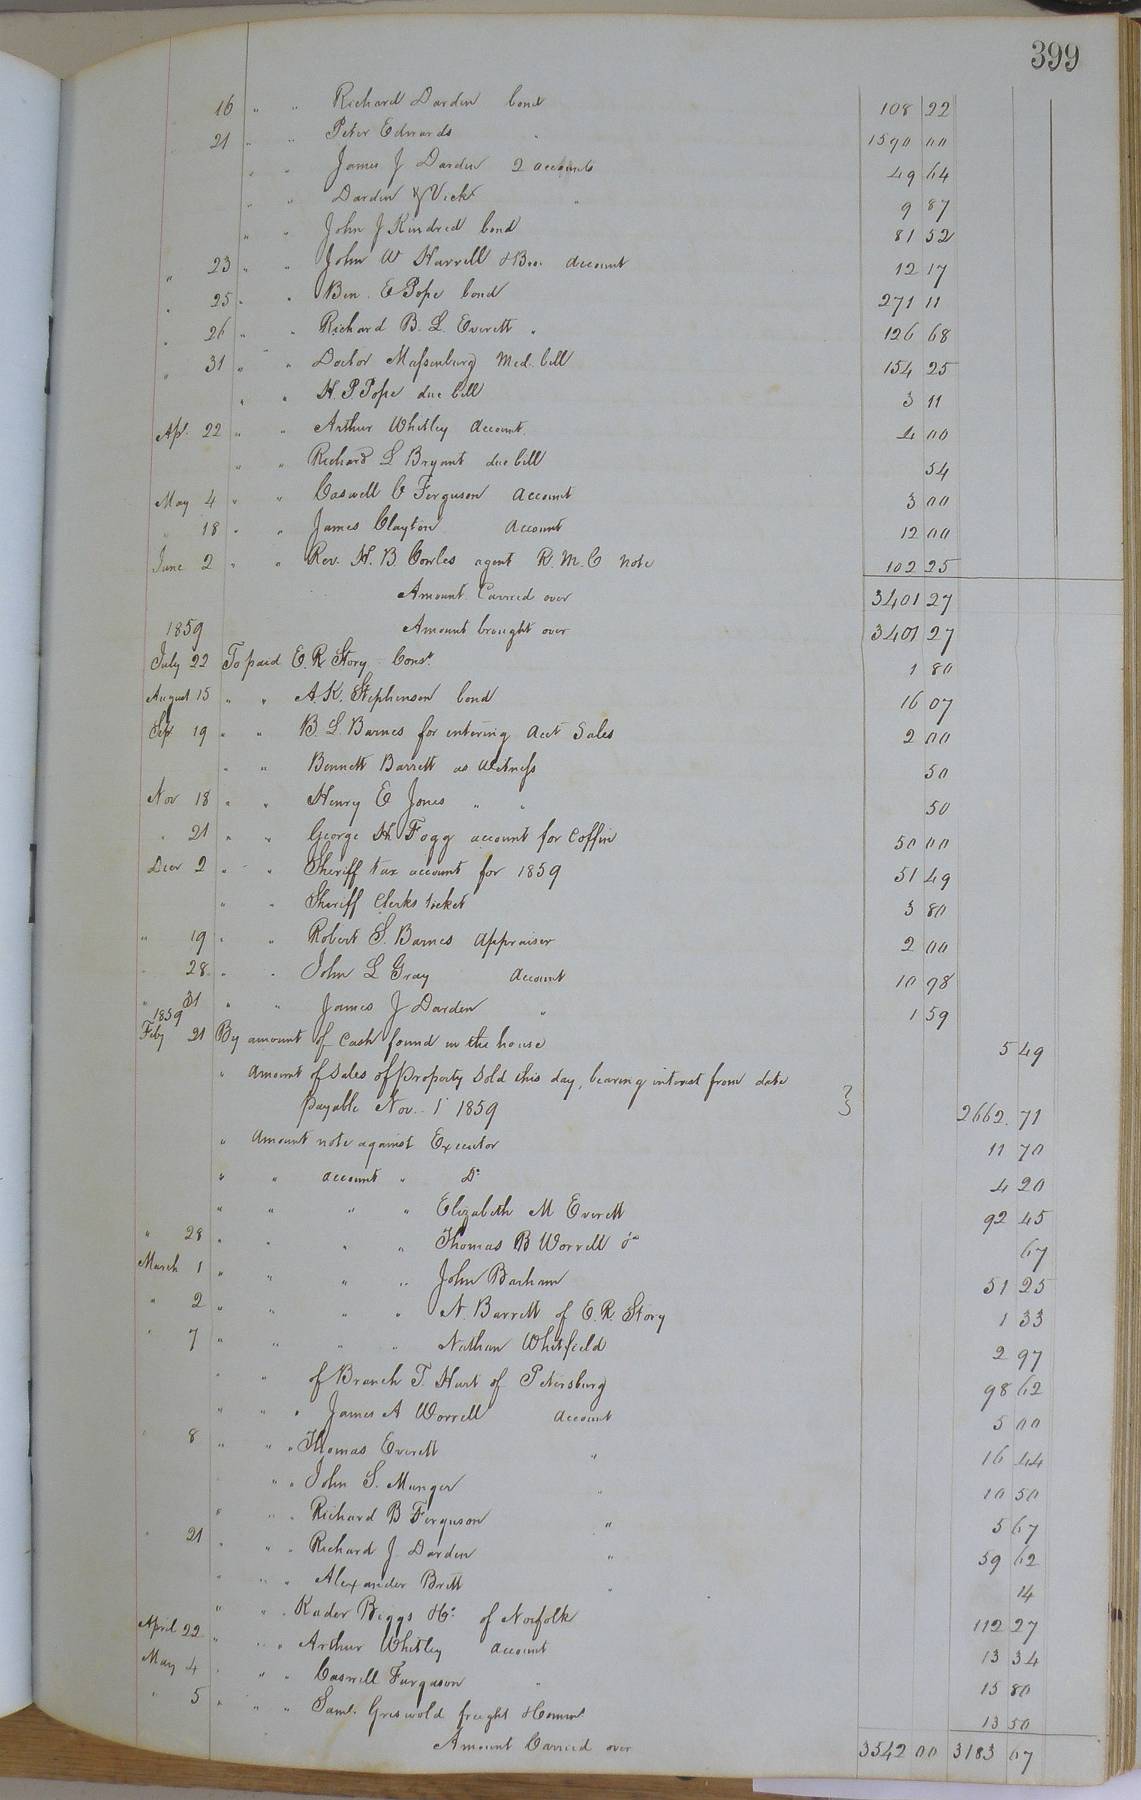 399
16 " " Richard Darden bond 108 22
21 " " Peter Edwards " 1590 00
" " James J Darden 2 accounts 49 64
" " Darden & Vick " 9 87
" " John J Kindred bond 81 52
" 23 " " John W Harrell & Bro. account 12 17
" 25 " " Ben. E Pope bond 271 11
" 26 " " Richard B. L. Everett " 126 68
" 31 " " Doctor Massenburg Med. bill 154 25
" " H. P. Pope due bill 3 11
Apl. 22 " " Arthur Whitley account. 4 00
" " Richard L Bryant due bill 54
May 4 " " Caswell C Ferguson account 3 00
" 18 " " James Clayton account 12 00
June 2 " " Rev. H. B. Cowles agent R. M. C note 102 25
Amount Carried over 3401 27
1859 Amount brought over 3401 27
July 22 To paid E. R Story Const. 1 80
August 15 " " A. K. Stephenson bond 16 07
Sep 19 " " B. L. Barnes for entering acct Sales 2 00
" " Bennett Barrett as witness 50
Nov 18 " " Henry E Jones " " 50
" 21 " " George H Fogg account for coffin 50 00
Decr 2 " " Sheriff tax account for 1859 51 49
" " Sheriff Clerks ticket 3 80
" 19 " " Robert S. Barnes appraiser 2 00
" 28 " " John L Gray account 10 98
" 31 " " James J Darden " 1 59
1859
Feby 21 By amount of cash found in the house 5 49
" amount of sales of property sold this day, bearing interest from date
payable Nov. 1 1859 } 2662. 71
" Amount note against Executor 11 70
" " account " Do 4 20
" " " " Elizabeth M Everett 92 45
" 28 " " " " Thomas B Worrell 67
March 1 " " " " John Barham 51 25
" 2 " " " " N. Barrett of E. R. Story 1 33
" 7 " " " " Nathan Whitfield 2 97
" " of Branch T. Hurt of Petersburg 98 62
" " " James A Worrell account 5 00
" 8 " " " Thomas Everett " 16 44
" " John S. Munger " 10 50
" " " Richard B Ferguson " 5 67
" 21 " " " Richard J. Darden " 59 62
" " " Alexander Britt " 14
" " " Kader Biggs & Co. of Norfolk 112 27
April 22 " " " Arthur Whitley account 13 34
May 4 " " " Caswell Furgason " 15 80
" 5 " " " Saml. Griswold freight 13 50
Amount Carried over 3542 00 3183 67